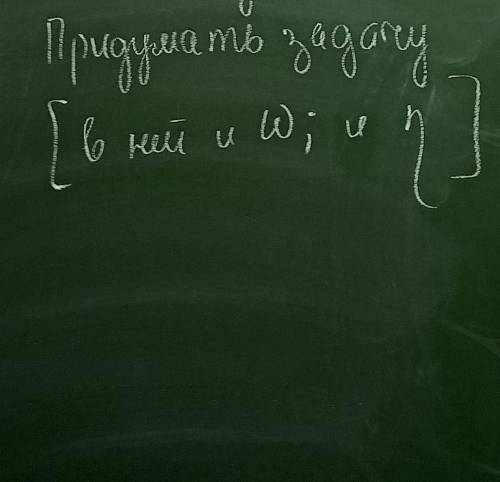 Придумать задачу
[в ней и ω; и η]